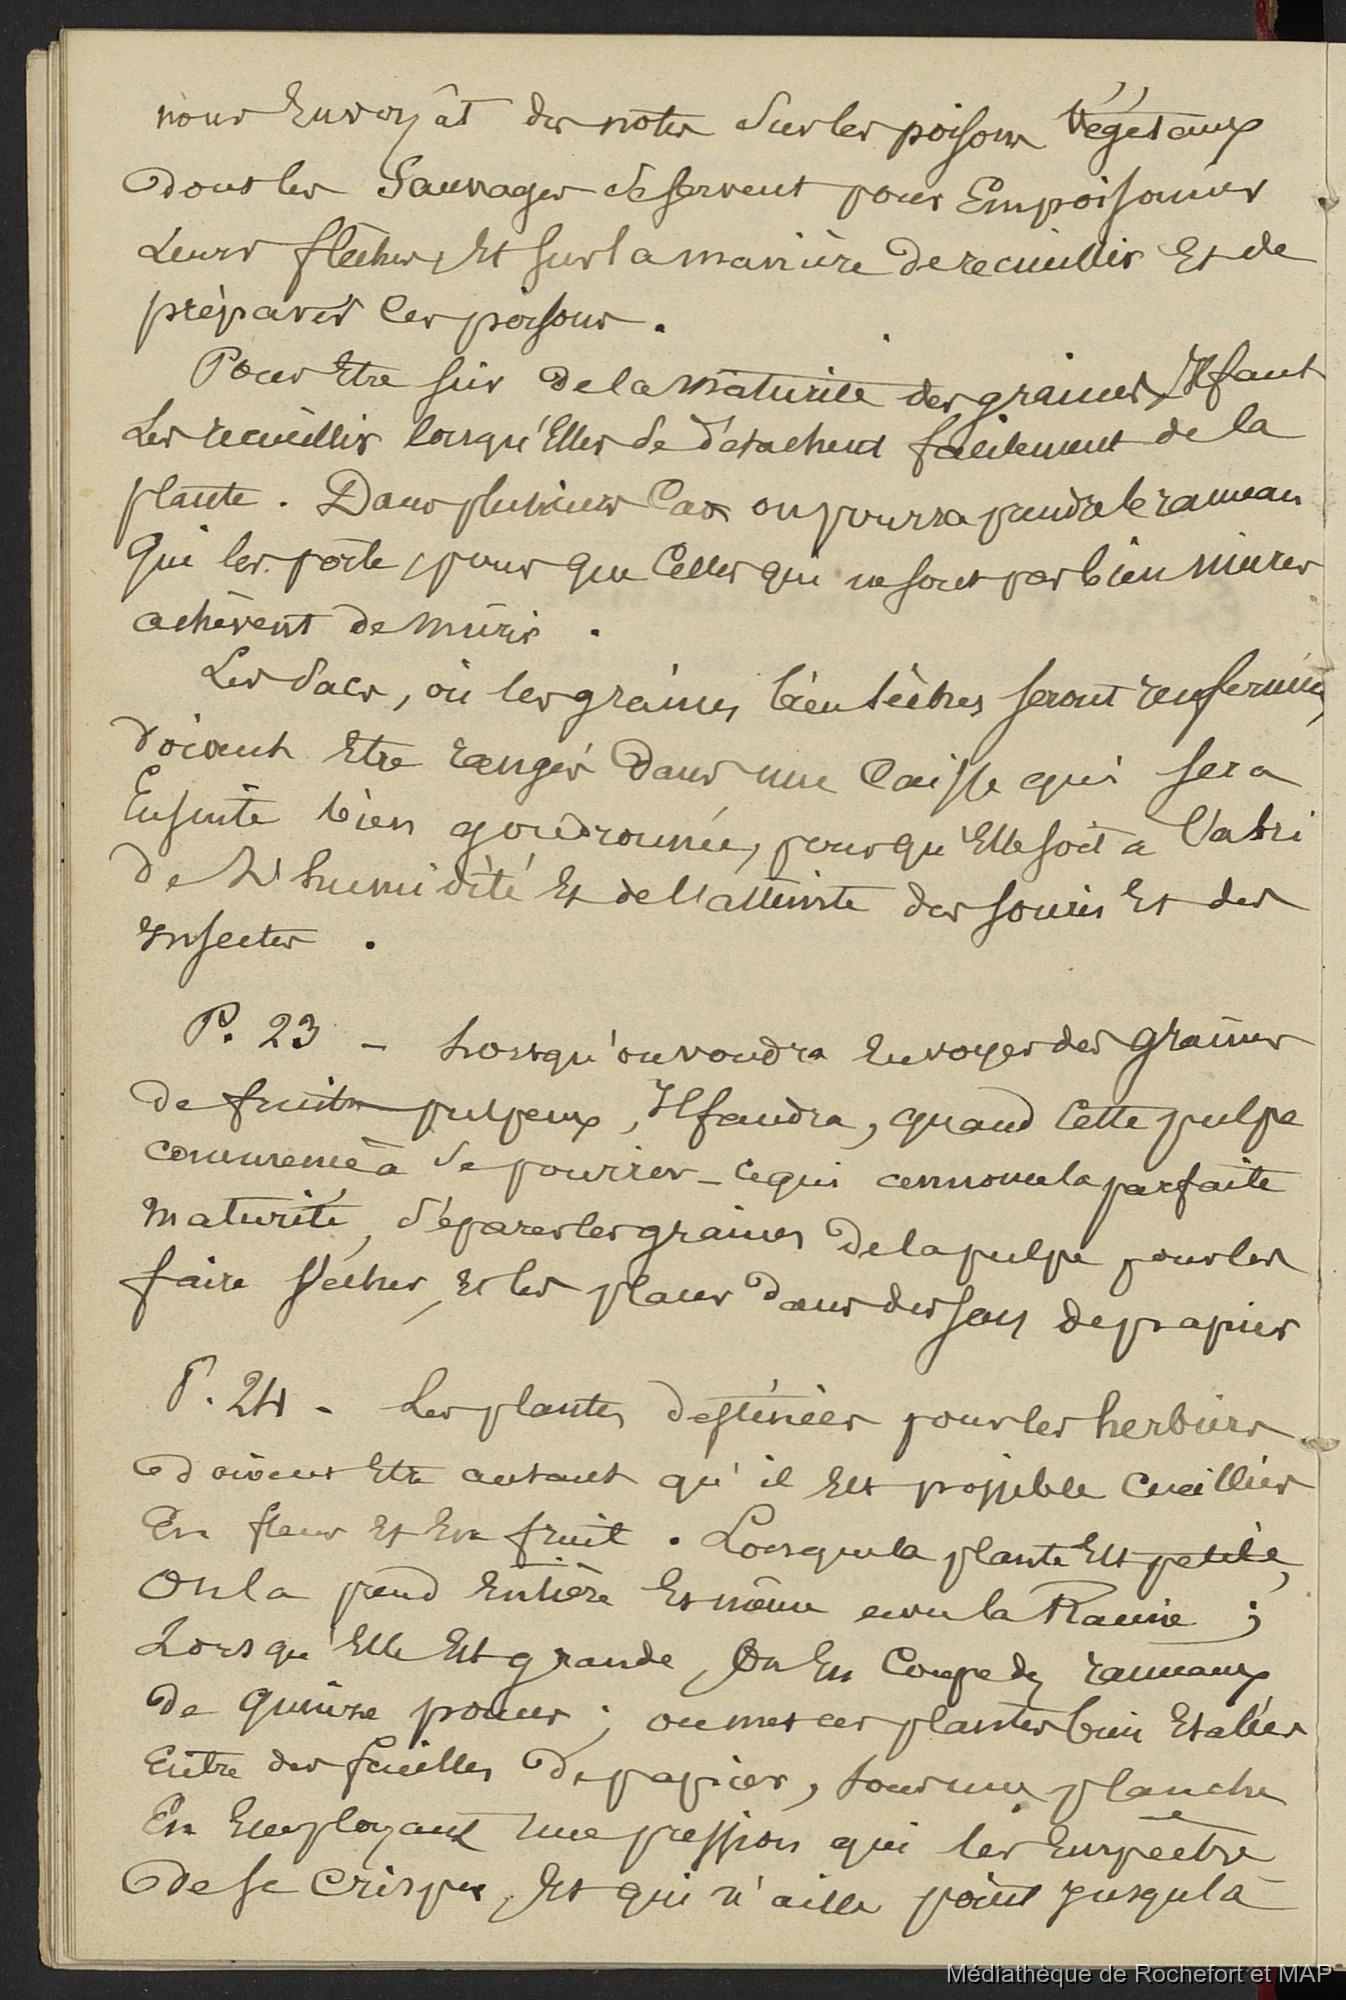 nous Envoyât des notes sur les poisons Végétaux
dont les Sauvages se servent pour Empoisonner
Leurs flèches, Et sur la manière de recueillir Et de
préparer Ces poisons.
Pour Etre sûr de la maturité des graines, Il faut
Les recueillir lorsqu'Elles se détachent facilement de la
plante. Dans plusieurs Cas on pourra pendre le rameau
Qui les porte, pour que Celles qui ne sont pas bien mûres
achèvent de mûrir.
Les Sacs, où les graines bien sèches seront renfermées,
doivent Etre rangés dans une Caisse qui sera
Ensuite bien goudronnée, pour qu'Elle soit a l'abri
de l'humidité Et de l'atteinte des souris Et des
insectes.
P. 23 - Lorsqu'on voudra Envoyer des graines
de fruits pulpeux, Il faudra, quand Cette pulpe
commence à se pourrir - ce qui annonce la parfaite
maturité, séparer les graines de la pulpe pour les
faire sécher, Et les placer dans des sacs de papier
P. 24 - Les plantes destinées pour les herbiers
doivent Etre autant qu'il Est possible Cueillies
En fleur Et En fruit. Lorsque la plante Est petite,
On la prend Entière Et même avec la Racine ;
Lorsqu'Elle Est grande, On En Coupe des rameaux
de quinze pouces ; on met ces plantes bien Etalées
Entre des feuilles de papier, sous une planche
En Employant une pression qui les Empêche
de se crisper, Et qui n'aille point jusqu'à
Médiathèque de Rochefort et MAP